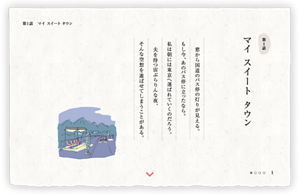 第1話 マイ スイート タウン
第1話
マイ スイート タウン
窓から国道のバス停の灯りが見える。
もし今、あのバス停に立ったなら、
私は朝には東京へ運ばれていくのだろう。
夫を待つ宙ぶらりんな夜、
そんな空想を遊ばせてしまうことがある。
1